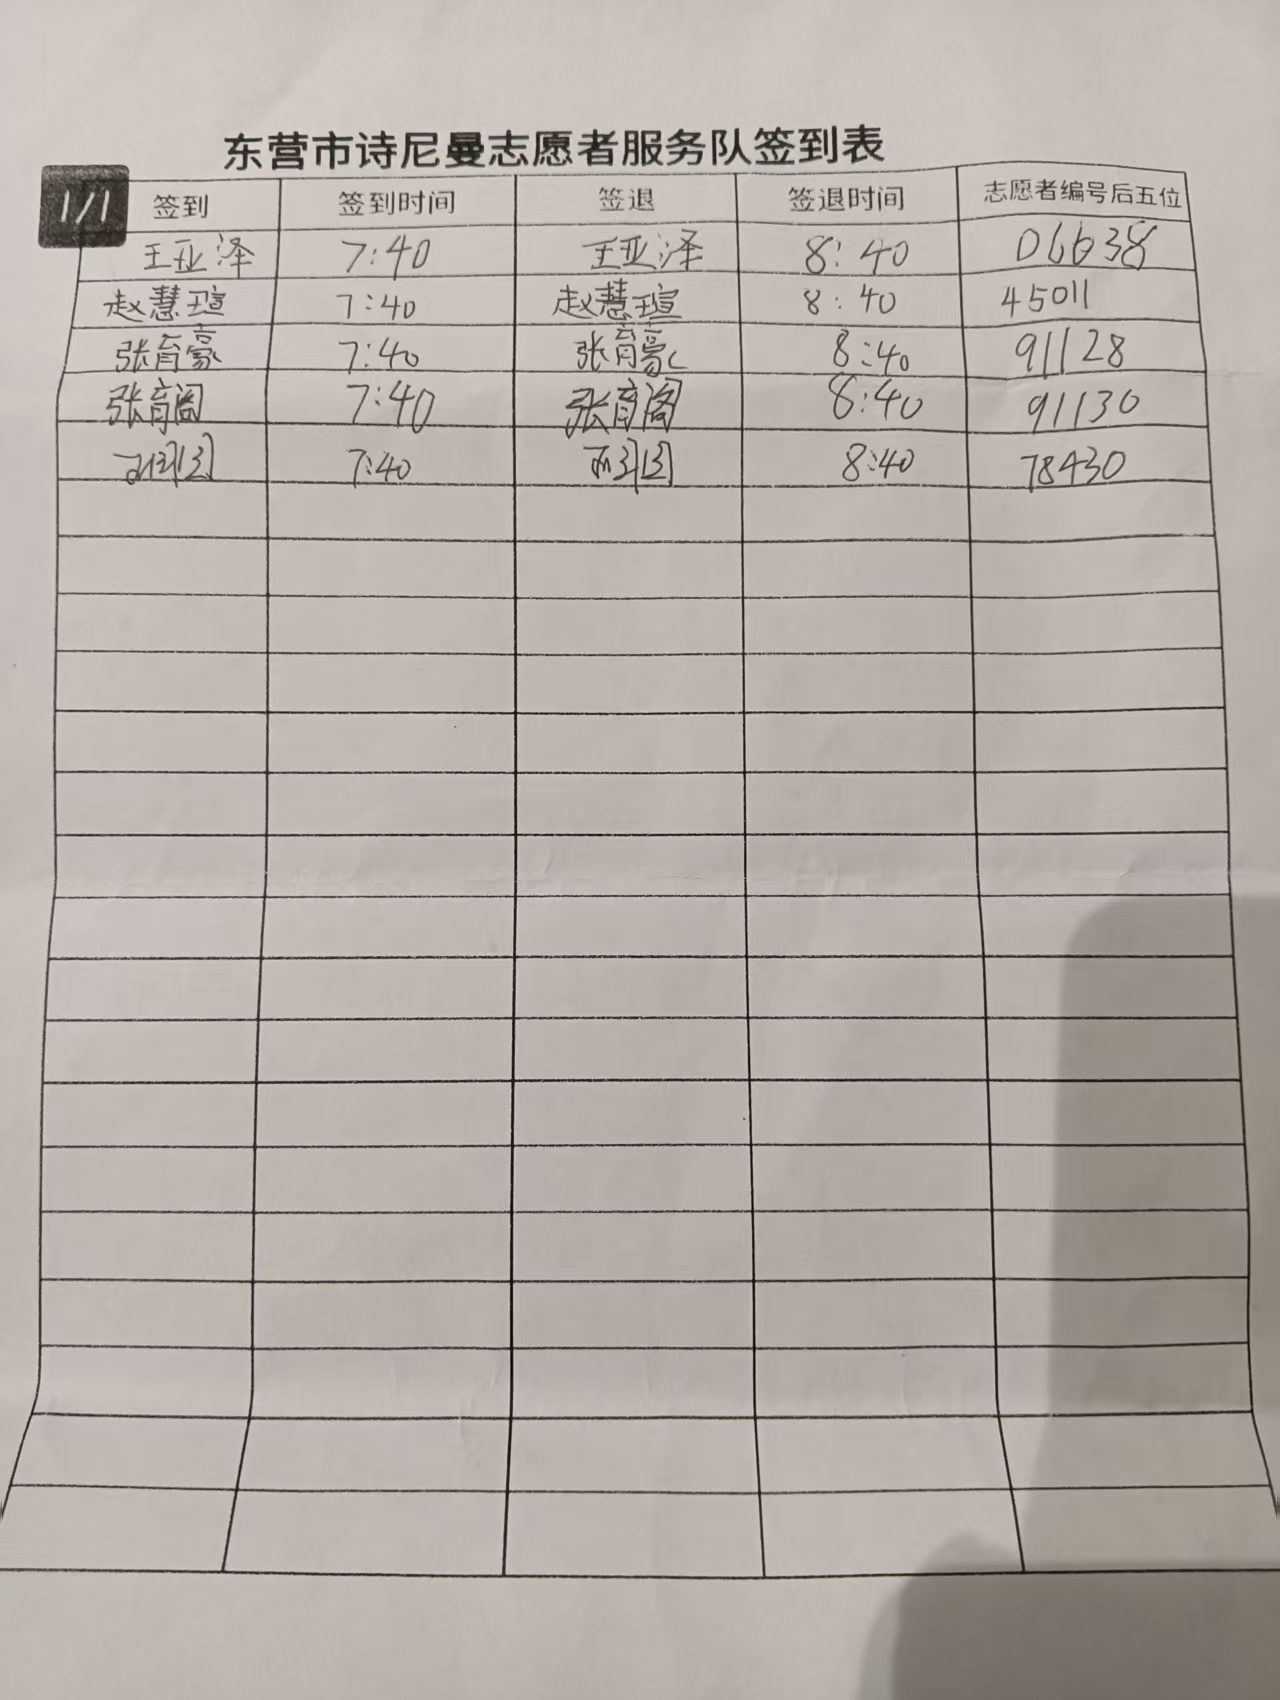 东营市诗尼曼志愿者服务队签到表
1/1 签到 签到时间 签退 签退时间 志愿者编号后五位
王亚泽 7:40 王亚泽 8:40 06638
赵慧瑄 7:40 赵慧瑄 8:40 45011
张育豪 7:40 张育豪 8:40 91128
张育阁 7:40 张育阁 8:40 91130
7:40 8:40 78430